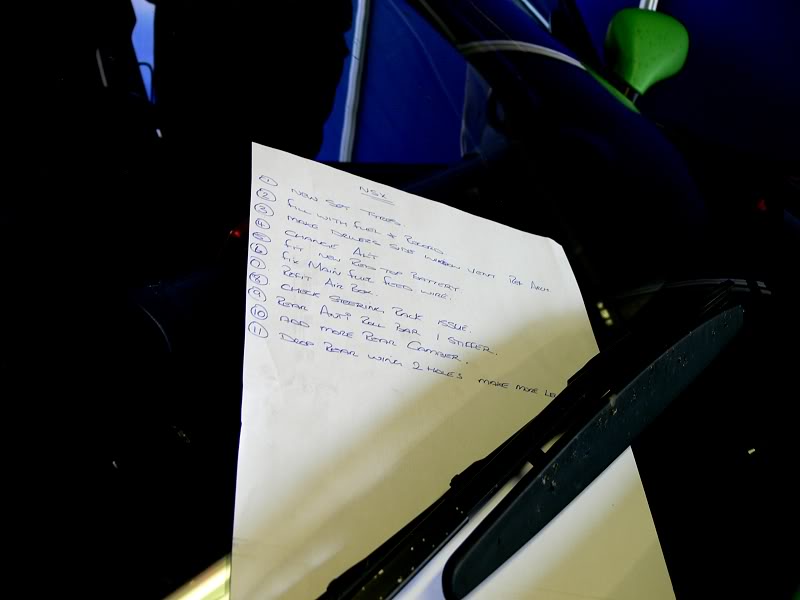 NSX
① NEW SET TYRES.
② FILL WITH FUEL & RECORD
③ MAKE DRIVERS SIDE WINDOW VENT
④ CHANGE ALT
⑤ FIT NEW RED TOP BATTERY
⑥ FIX MAIN FUEL FEED WIRE.
⑦ REFIT AIR BOX.
⑧ CHECK STEERING RACK ISSUE.
⑨ REAR ANTI ROLL BAR 1 STIFFER.
⑩ ADD MORE REAR CAMBER.
⑪ DROP REAR WING 2 HOLES MAKE MORE